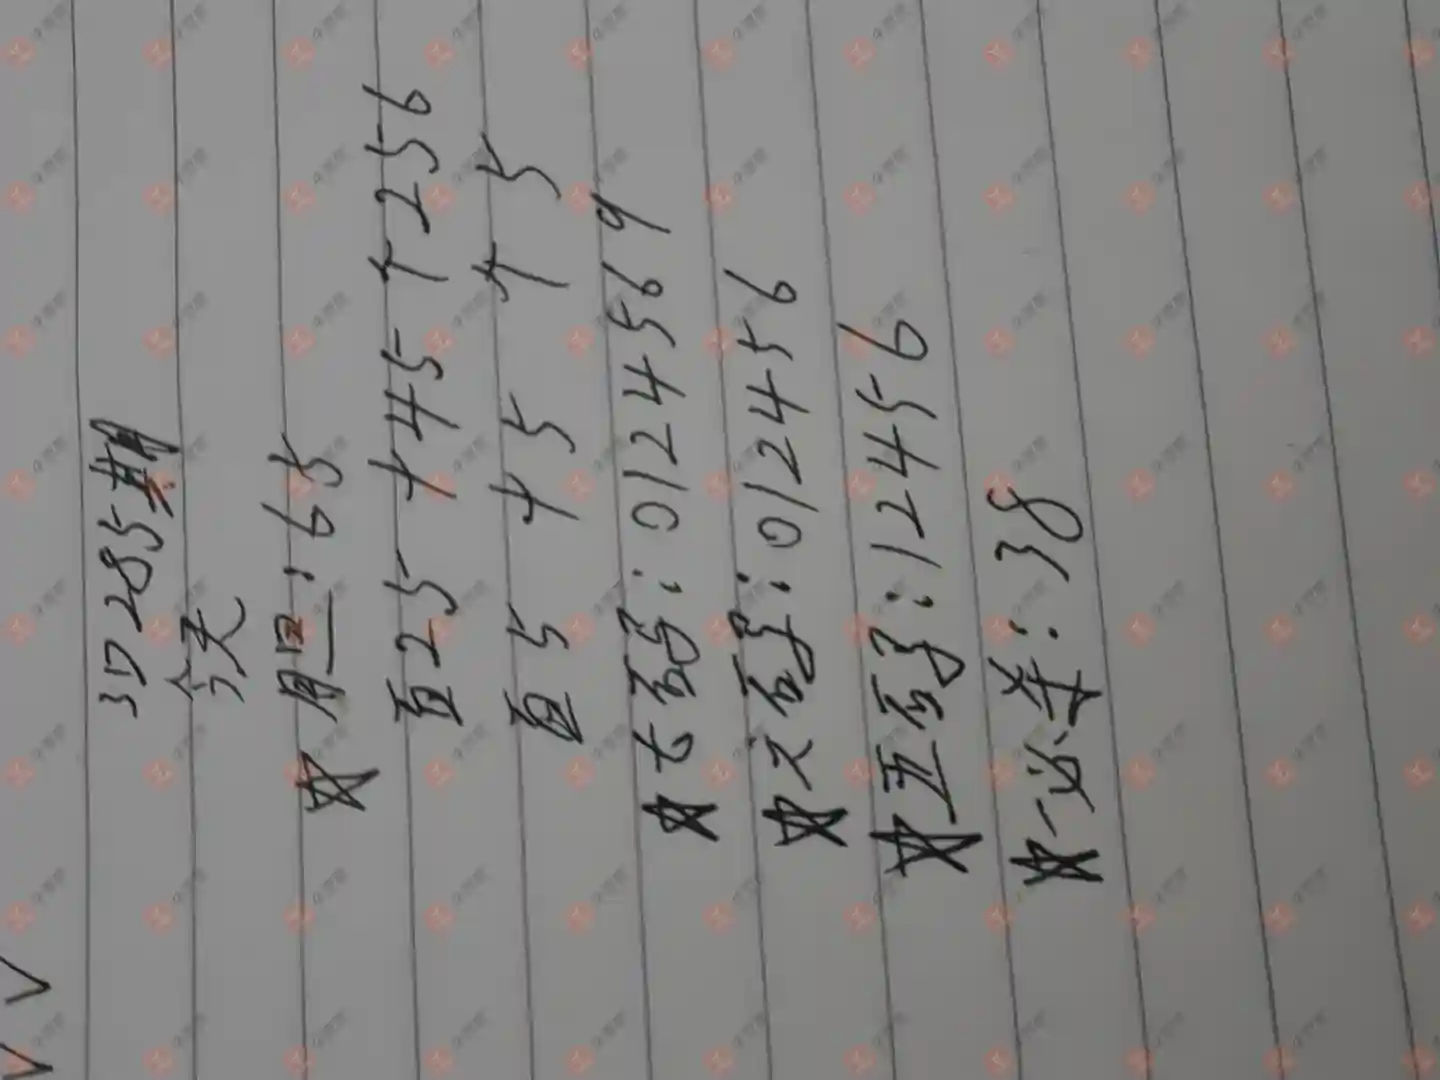 3D285期
今天
☆胆:65
百25 十45 个256
百5 十5 个5
☆七码:0124569
☆六码:012456
☆五码:12456
☆一必杀:38